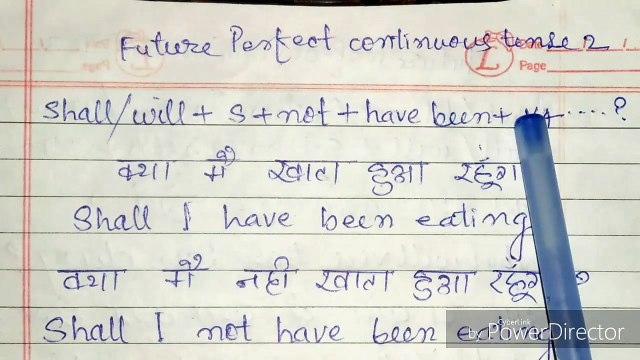 Future Perfect continuous tense 2
Page
Shall/will + S + not + have been + ....?
क्या मैं खाता हुआ रहूंगा
Shall I have been eating
क्या मैं नही खाता हुआ रहूंगा
Shall I not have been
by CyberLink PowerDirector